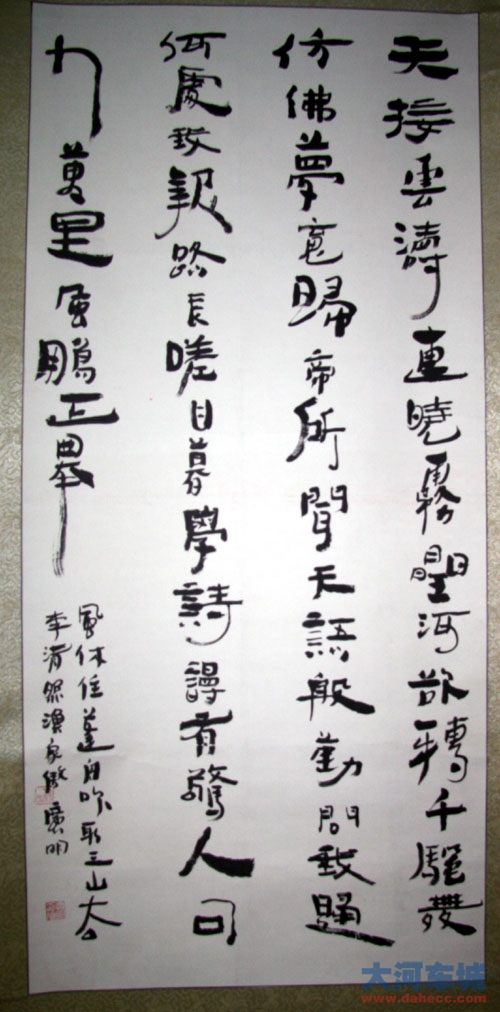 天接雲濤連曉霧曐河欲轉千颿舞
仿佛夢魂歸帝所聞天語殷勤問我歸
何處我報路長嗟日暮學詩謾有驚人句
九萬里風鵬正舉
風休住蓬舟吹取三山去
李清照漁家傲 廣明
大河车城
www.dahecc.com